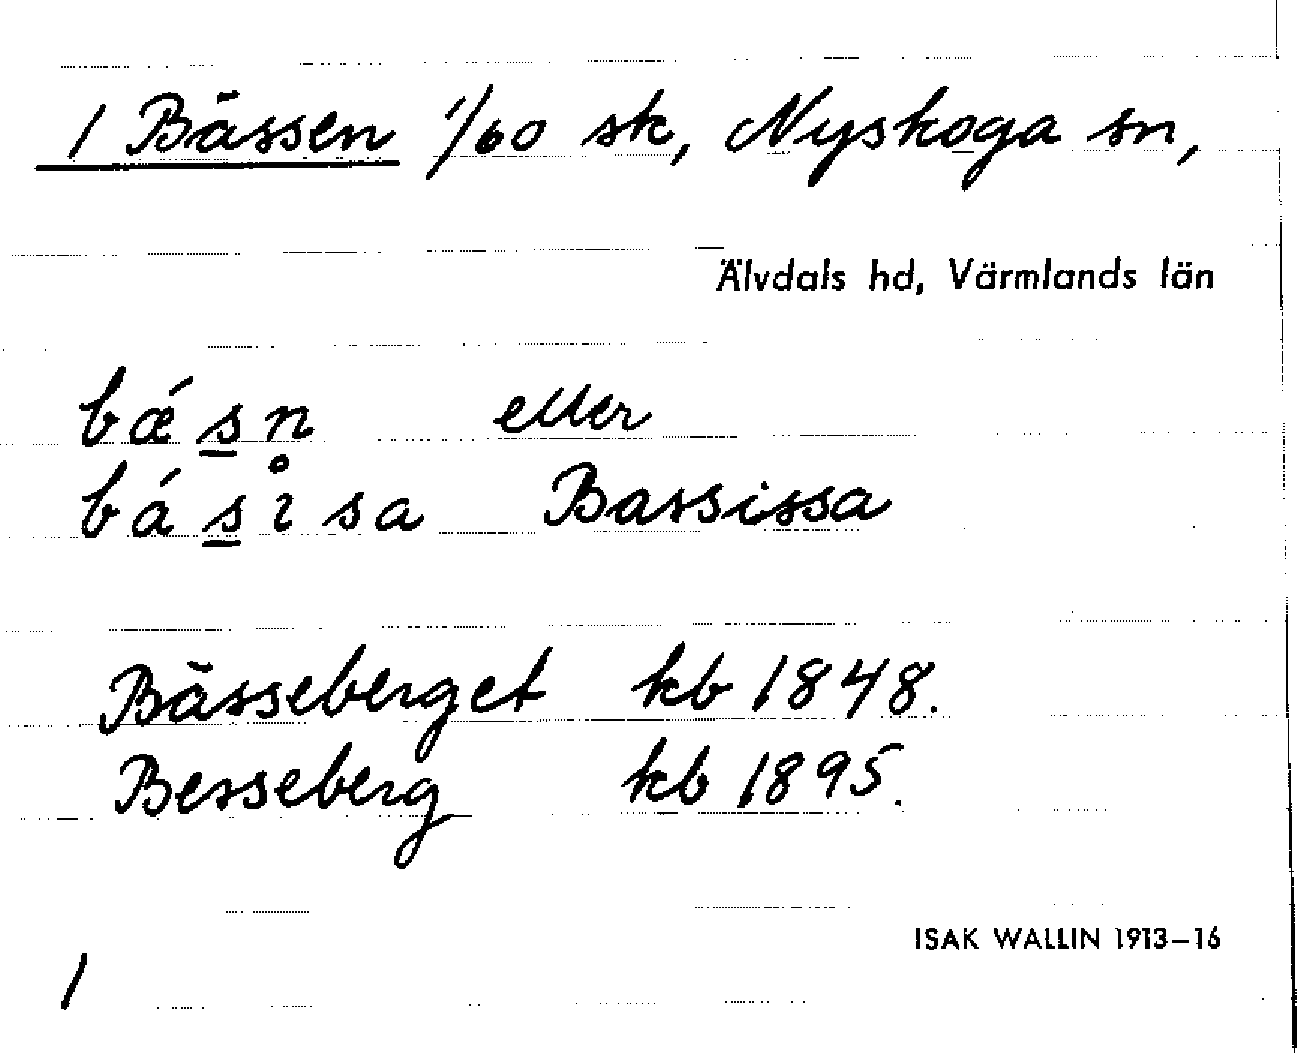 1 Bässen 1/60 sk, Nyskoga sn,
Älvdals hd, Värmlands län
bǽs̲n eller
bás̲i̊sa Bassissa
Bässeberget kb 1848.
Besseberg kb 1895.
ISAK WALLIN 1913–16
1